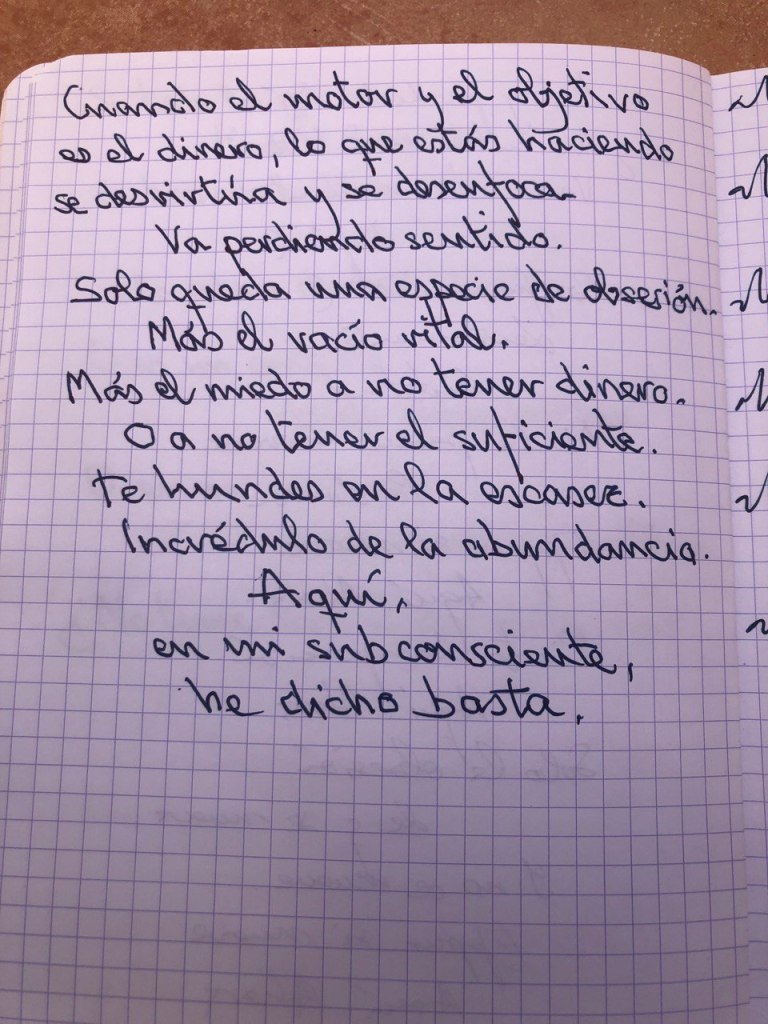 Cuando el motor y el objetivo
es el dinero, lo que estás haciendo
se desvirtúa y se desenfoca
Va perdiendo sentido.
Solo queda una especie de obsesión.
Más el vacío vital.
Más el miedo a no tener dinero.
O a no tener el suficiente.
Te hundes en la escasez.
Incrédulo de la abundancia.
Aquí,
en mi subconsciente,
he dicho basta.